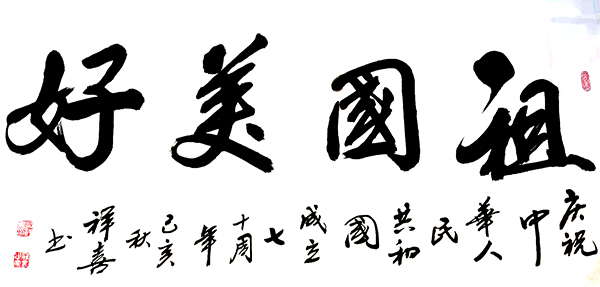 祖國美好
庆祝中華人民共和國成立七十周年己亥秋祥喜书